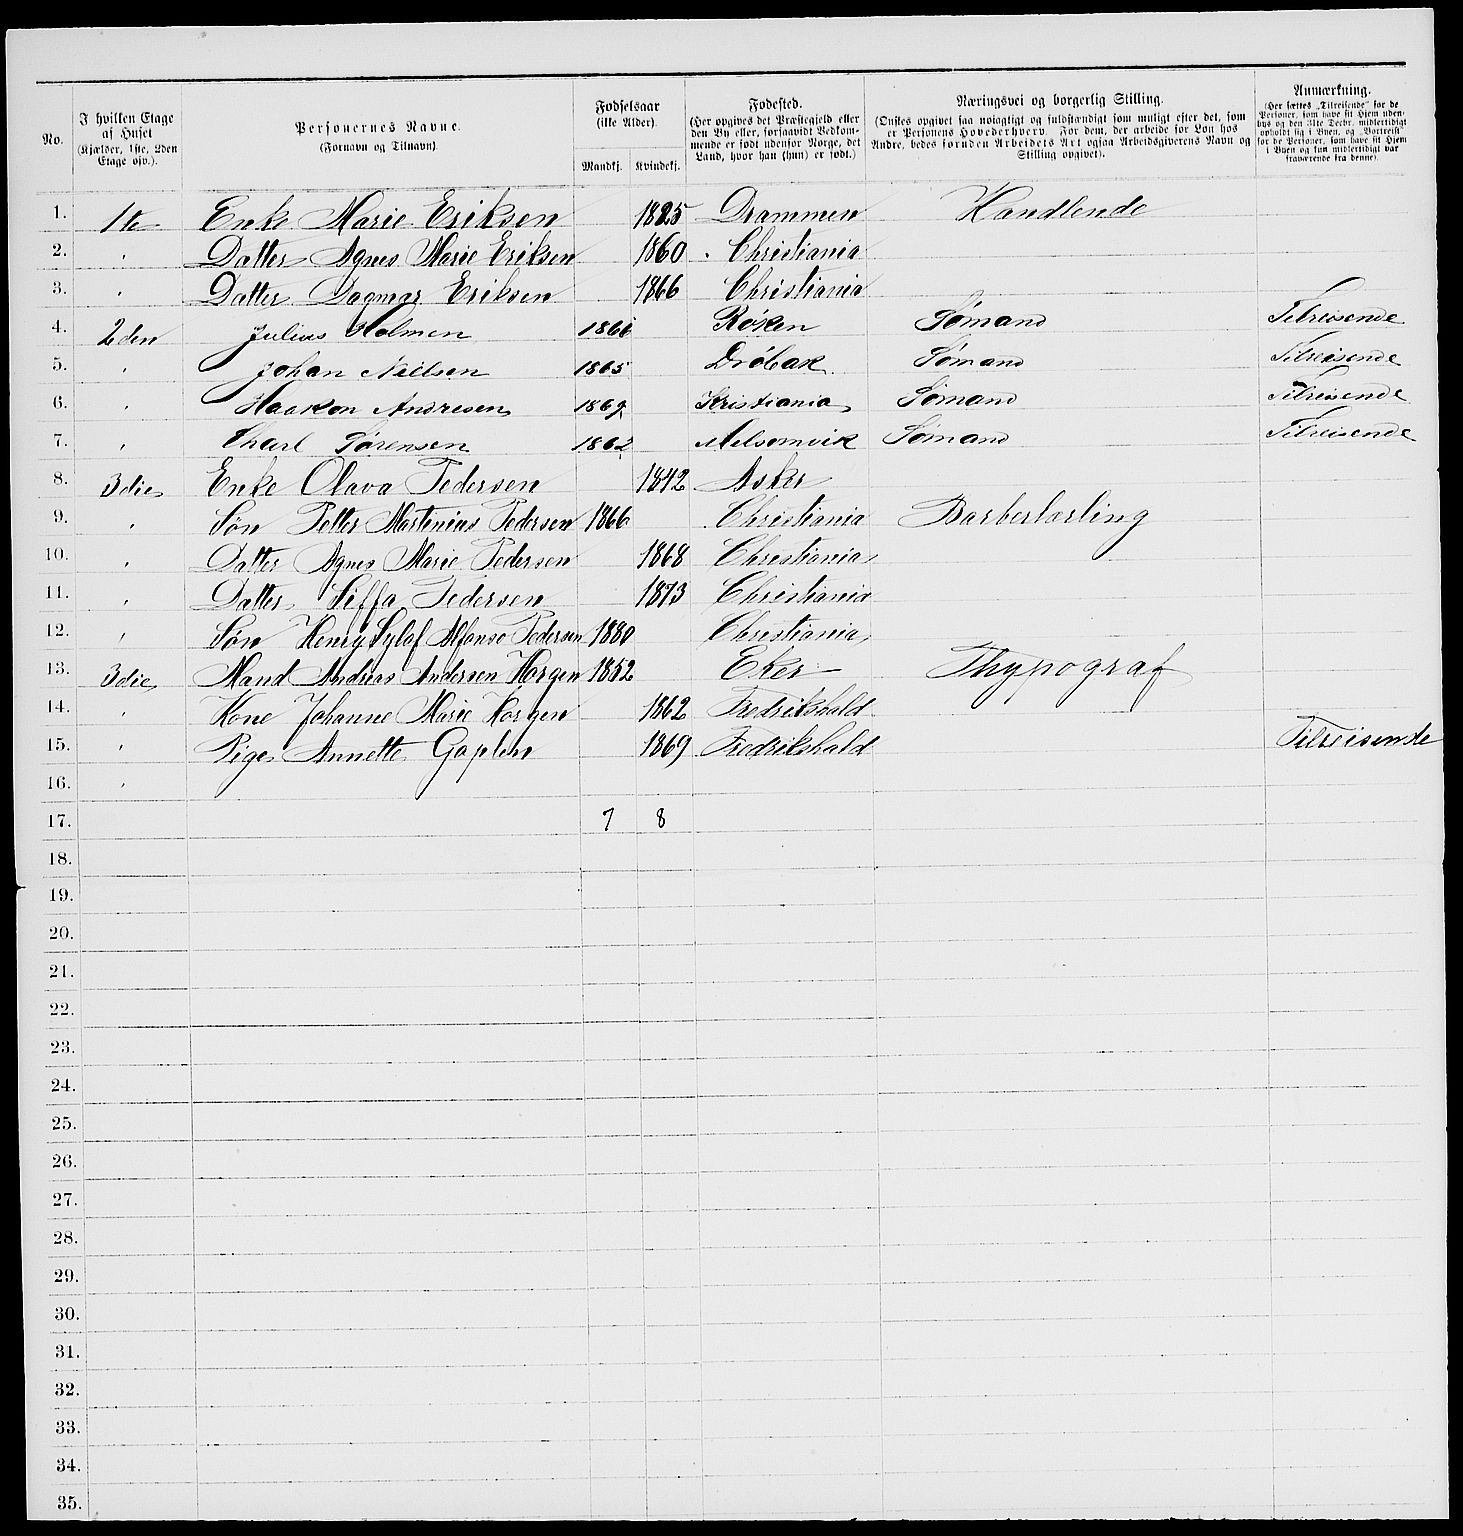 No. | I hvilken Etage af Huset (Kjælder, 1ste, 2den Etage osv.). | Personernes Navne. (Fornavn og Tilnavn). | Fødselsaar (ikke Alder). Mandkj. | Kvindekj. | Fødested. (Her opgives det Præstegjeld eller den By eller, forsaavidt Vedkommende er født udenfor Norge, det Land, hvor han (hun) er født.) | Næringsvei og borgerlig Stilling. (Ønskes opgivet saa nøiagtigt og fuldstændigt som muligt efter det, som er Personens Hovederhverv. For dem, der arbeide for Løn hos Andre, bedes foruden Arbeidets Art ogsaa Arbeidsgiverens Navn og Stilling opgivet). | Anmærkning. (Her sættes „Tilreisende“ for de Personer, som have sit Hjem udenbys og den 31te Decbr. midlertidigt opholdt sig i Byen, og „Bortreist“ for de Personer, som have sit Hjem i Byen og kun midlertidigt var fraværende fra denne).
1. | 1te | Enke Marie Eriksen | | 1825 | Drammen | Handlende
2. | " | Datter Agnes Marie Eriksen | | 1860 | Christiania
3. | " | Datter Dagmar Eriksen | | 1866 | Christiania
4. | 2den | Julius Holmen | 1866 | | Røken | Sømand | Tilreisende
5. | " | Johan Nielsen | 1865 | | Drøbak | Sømand | Tilreisende
6. | " | Haakon Andresen | 1869 | | Kristiania | Sømand | Tilreisende
7. | " | Charl Sørensen | 1862 | | Melsomvik | Sømand | Tilreisende
8. | 3die | Enke Olava Pedersen | | 1842 | Asker
9. | " | Søn Petter Martinius Pedersen | 1866 | | Christiania | Barberlærling
10. | " | Datter Agnes Marie Pedersen | | 1868 | Christiania
11. | " | Datter Siffa Pedersen | | 1873 | Christiania
12. | " | Søn Henry Sylof Alfonso Pedersen | 1880 | | Christiania
13. | 3die | Mand Andreas Andersen Horgen | 1852 | | Eker | Thypograf
14. | " | Kone Johanne Marie Horgen | | 1862 | Fredrikshald
15. | " | Pige Annette Gaplen | | 1869 | Fredrikshald | | Tilreisende
16. | "
17. | | | 7 | 8
18.
19.
20.
21.
22.
23.
24.
25.
26.
27.
28.
29.
30.
31.
32.
33.
34.
35.